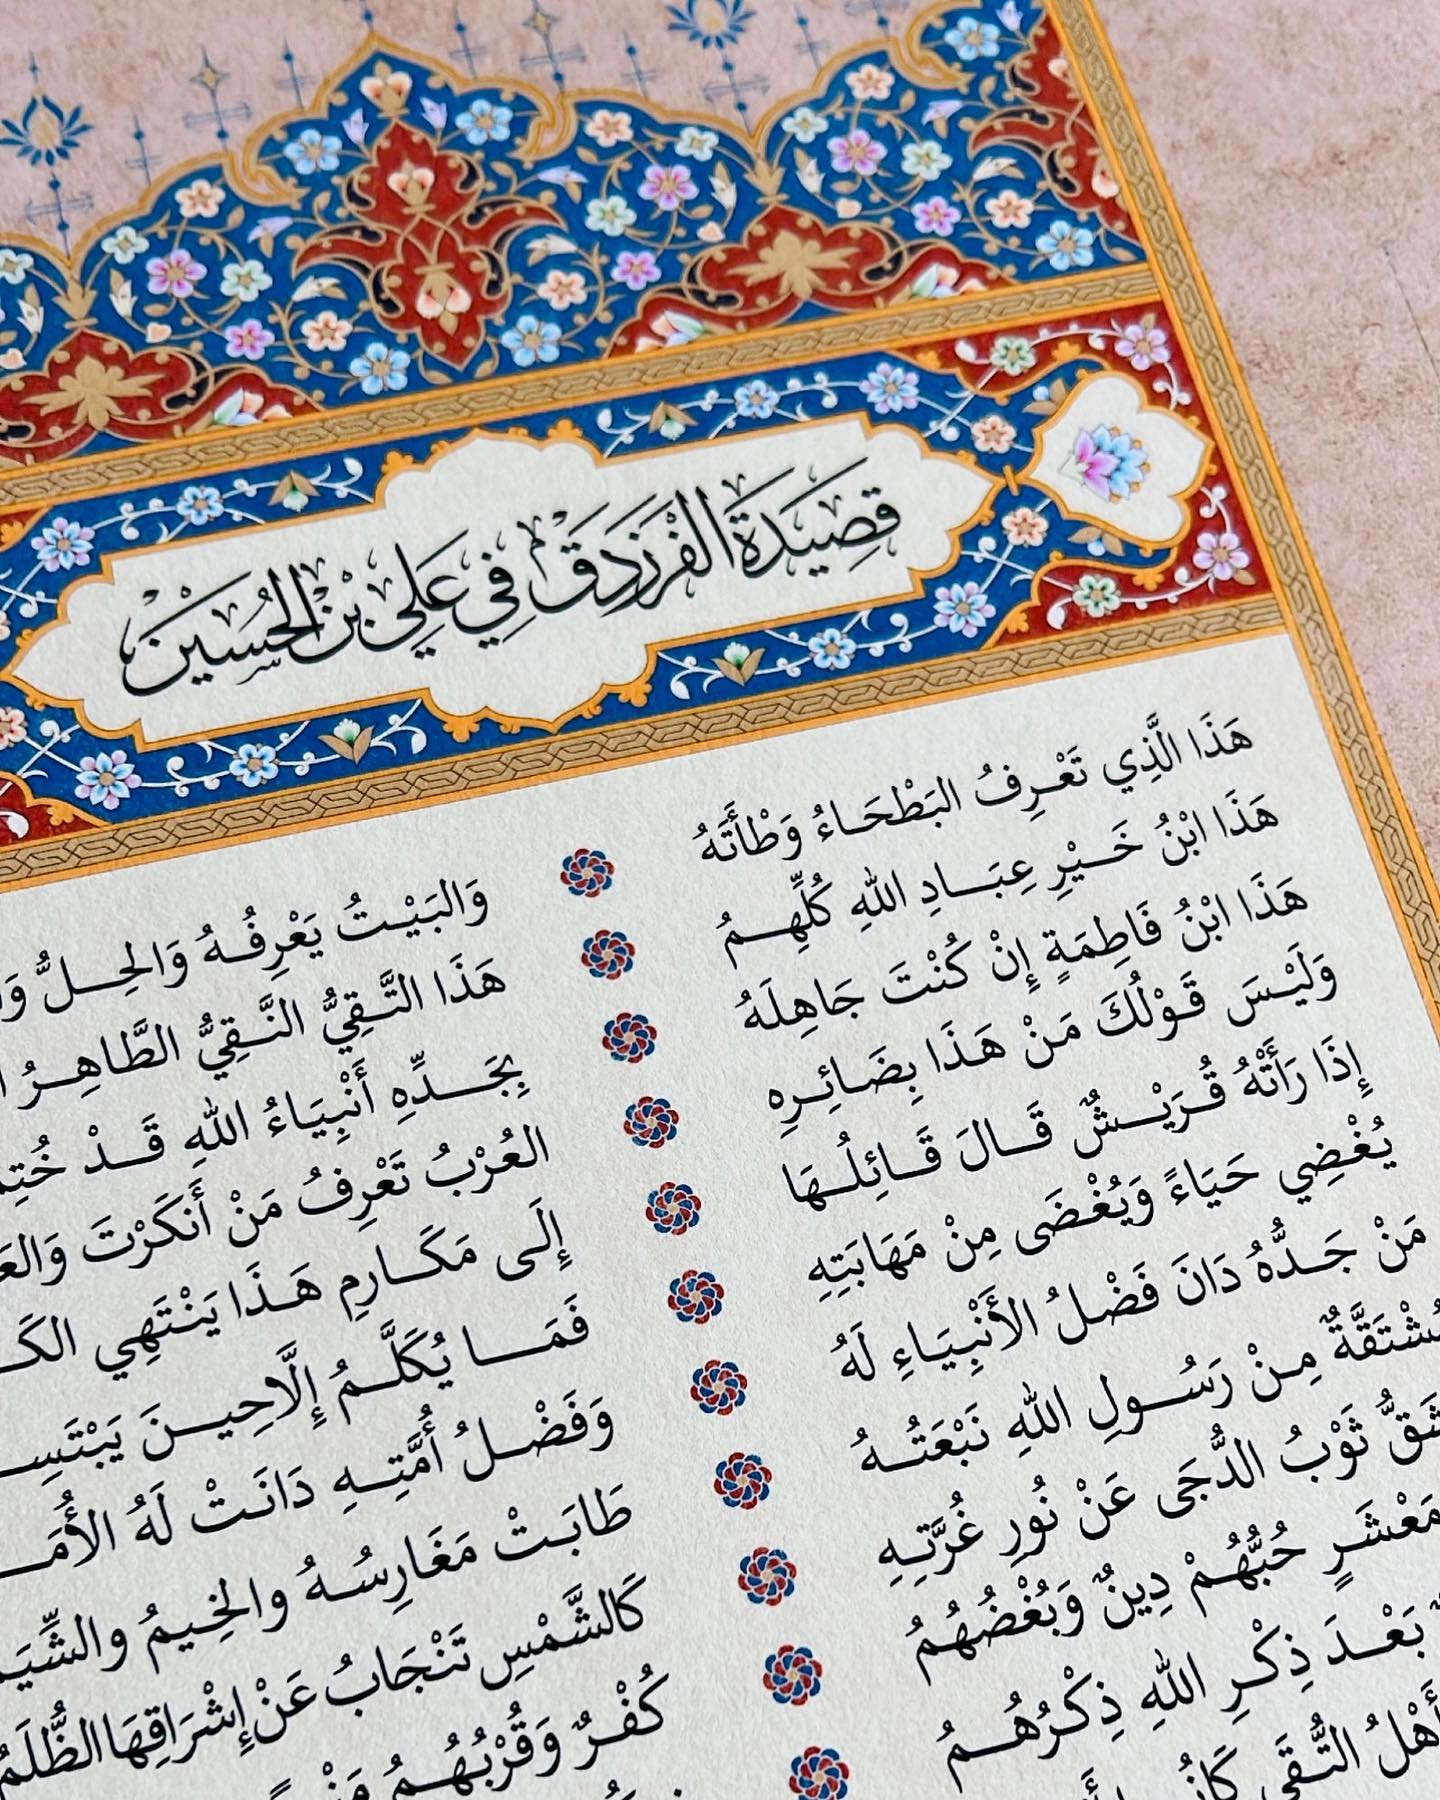 قَصِيدَةُ الفَرَزْدَقِ فِي عَلِي بْنِ الحُسَيْنِ
هَذَا الَّذِي تَعْرِفُ البَطْحَاءُ وَطْأَتَهُ وَالبَيْتُ يَعْرِفُهُ وَالحِلُّ
هَذَا ابْنُ خَيْرِ عِبَادِ اللهِ كُلِّهِمُ هَذَا التَّقِيُّ النَّقِيُّ الطَّاهِرُ
هَذَا ابْنُ فَاطِمَةٍ إِنْ كُنْتَ جَاهِلَهُ بِجَدِّهِ أَنْبِيَاءُ اللهِ قَدْ
وَلَيْسَ قَوْلُكَ مَنْ هَذَا بِضَائِرِهِ العُرْبُ تَعْرِفُ مَنْ أَنكَرْتَ
إِذَا رَأَتْهُ قُرَيْشٌ قَالَ قَائِلُهَا إِلَى مَكَارِمِ هَذَا يَنْتَهِي
يُغْضِي حَيَاءً وَيُغْضَى مِنْ مَهَابَتِهِ فَمَا يُكَلَّمُ إِلَّا حِينَ
مَنْ جَدُّهُ دَانَ فَضْلُ الأَنْبِيَاءِ لَهُ وَفَضْلُ أُمَّتِهِ دَانَتْ لَهُ
مُشْتَقَّةٌ مِنْ رَسُولِ اللهِ نَبْعَتُهُ طَابَتْ مَغَارِسُهُ والخِيمُ
ثَوْبُ الدُّجَى عَنْ نُورِ غُرَّتِهِ كَالشَّمْسِ تَنْجَابُ عَنْ إِشْرَاقِهَا الظُّلَمُ
مَعْشَرٍ حُبُّهُمْ دِينٌ وَبُغْضُهُمُ كُفْرٌ وَقُرْبُهُمُ
بَعْدَ ذِكْرِ اللهِ ذِكْرُهُمُ
أَهْلُ التُّقَى كَانُوا